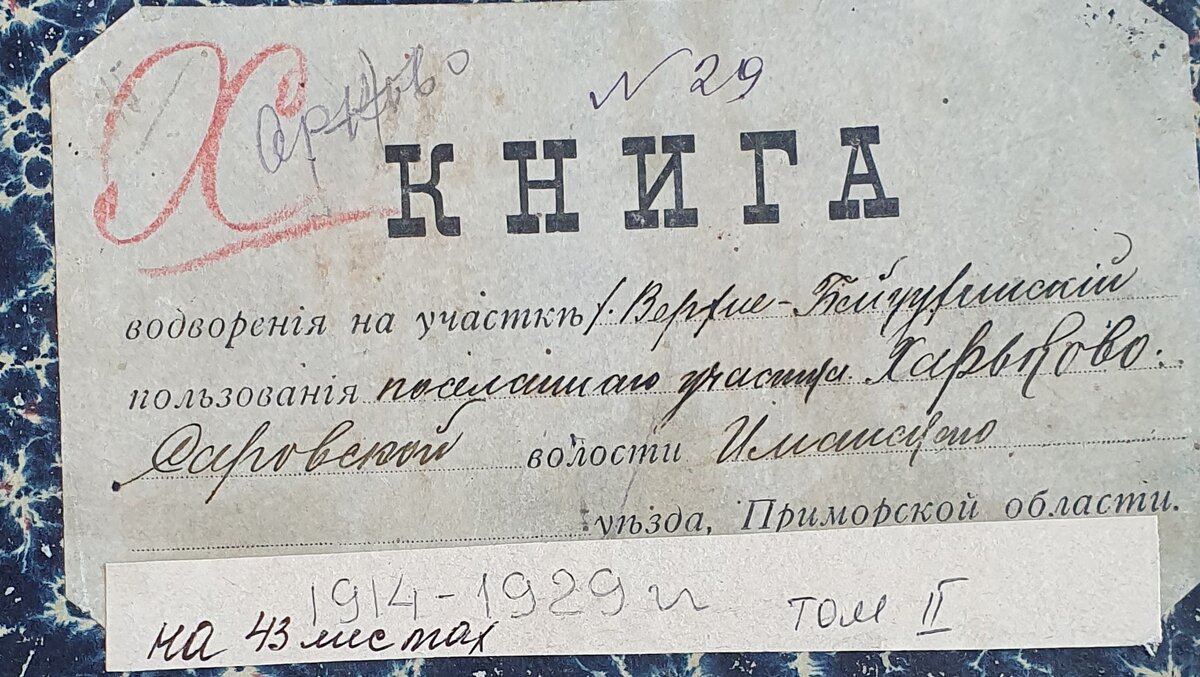 Харьково
№ 29
КНИГА
водворенія на участкѣ Верхне-Бейцухинскій
пользованія поселками участка Харьково.
Саровской волости Иманскаго
уѣзда, Приморской области.
1914-1929 гг
том II
на 43 листах